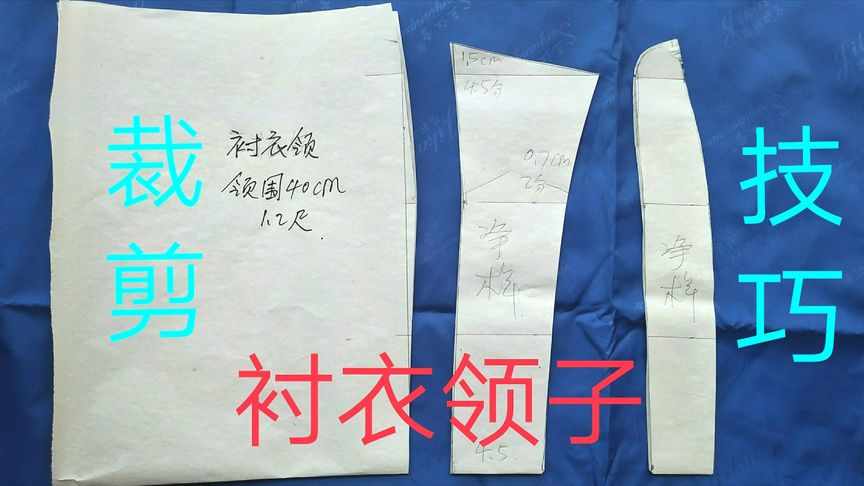 裁剪
衬衣领
领围40cm
1.2尺.
1.5cm
4.5分
0.7cm
2分
净样
4.5.
净样
技巧
衬衣领子